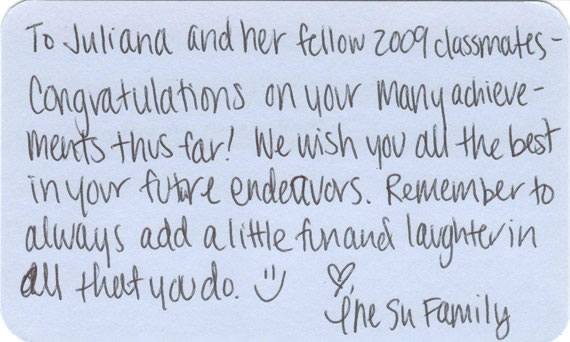 To Juliana and her fellow 2009 classmates-
Congratulations on your many achieve-
ments thus far! We wish you all the best
in your future endeavors. Remember to
always add a little fun and laughter in
all that you do. :)
♡, The Su Family